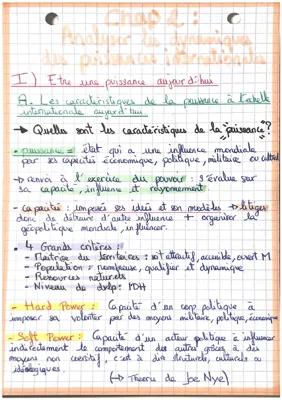 Chap 2 :
Analyser les dynamiques
des puissances internationales
I) Etre une puissance aujourd'hui
A. Les caractéristiques de la puissance à l'echelle
internationale aujourd'hui
→ Quelles sont les caractéristiques de la "puissance"?
- puissance = état qui a une influence mondiale
par ses capacités économique, politique, militaire ou culturel
→ renvoi à l'exercice du pouvoir : s'évalue sur
sa capacité, influence et rayonnement
- capacités : imposer ses idées et son modèles → litiges
donc de détruire d'autre influence + organiser la
géopolitique mondiale, influencer.
• 4 Grands critères :
- Maitrise du territoires : soit attractif, accessible, ouvert M
- Population = nombreuse, qualifier et dynamique
- Ressources naturels
- Niveau de dvlp : IDH
- Hard Power : Capacité d'un corp politique à
imposer sa volonter par des moyens militaire, politique, économique
- Soft Power : Capacité d'un acteur politique à influencer
indirectement le comportement des autres grâce à des
moyens non coercitif, c'est à dire structurels, culturels ou
idéologiques.
(→ Theorie de Joe Nye)